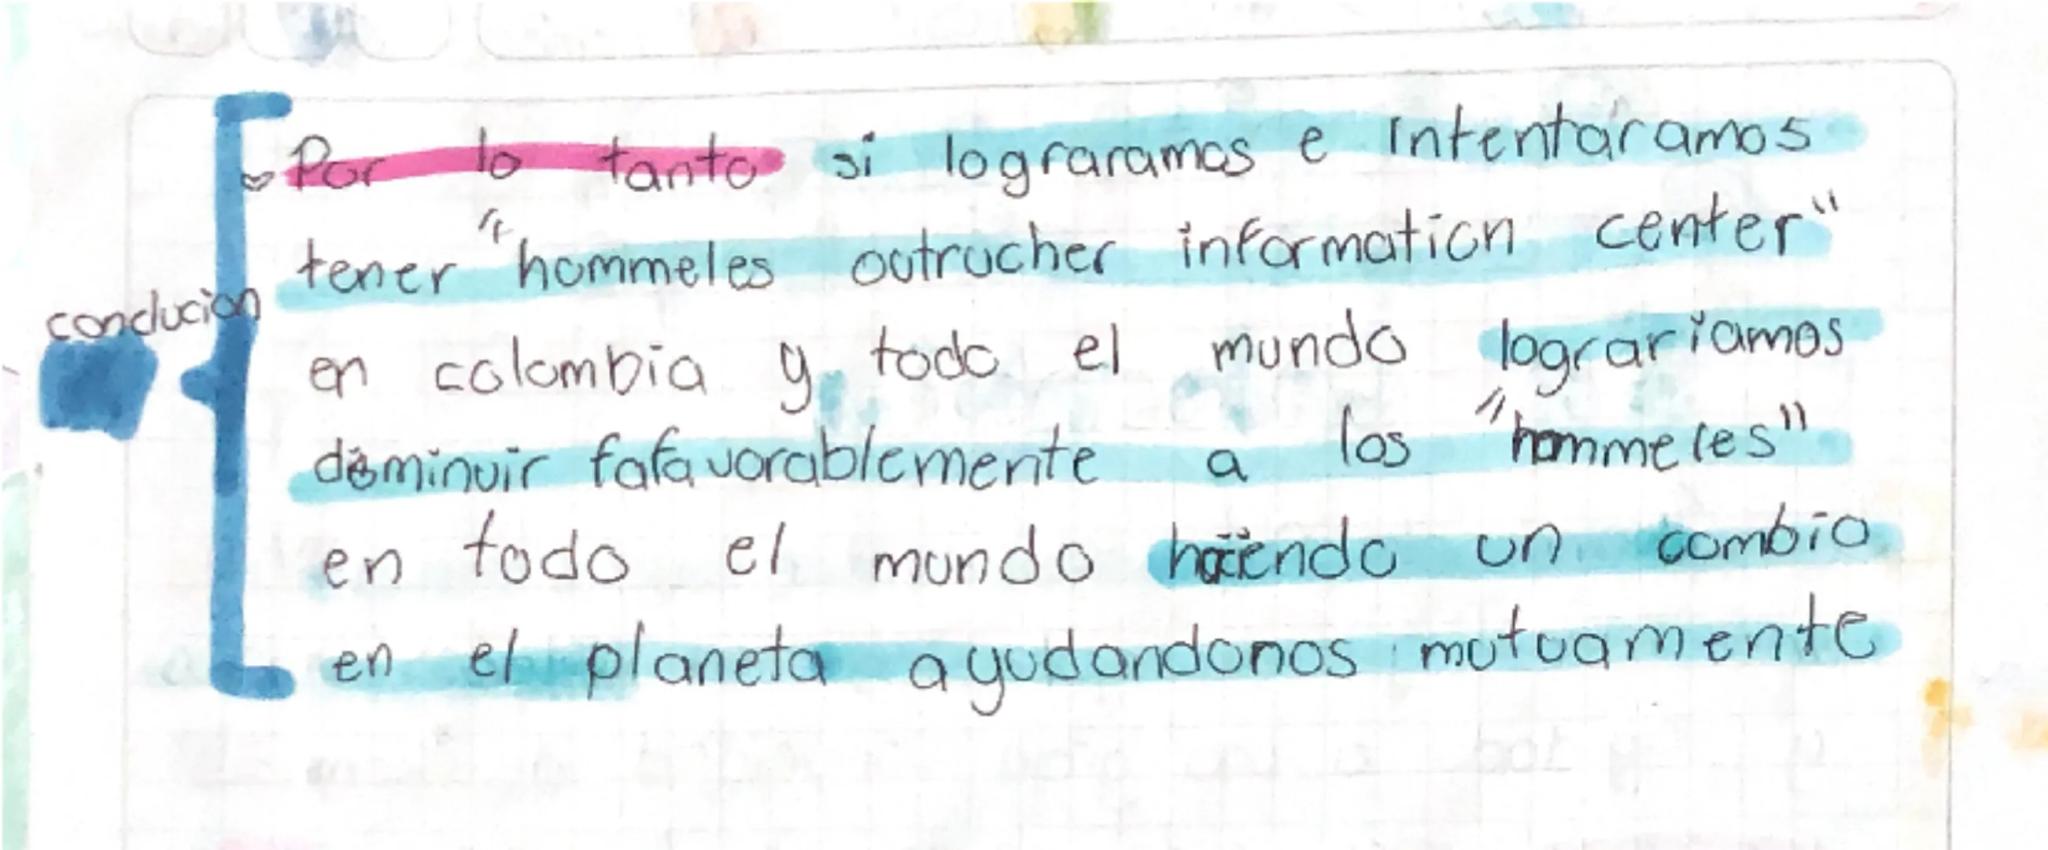 Por lo tanto si lograramos e intentáramos
tener "hommeles outrucher information center"
conclucion
en colombia y todo el mundo lograriamos
disminuir fafavorablemente a los "hommeles"
en todo el mundo haciendo un cambio
en el planeta ayudandonos mutuamente